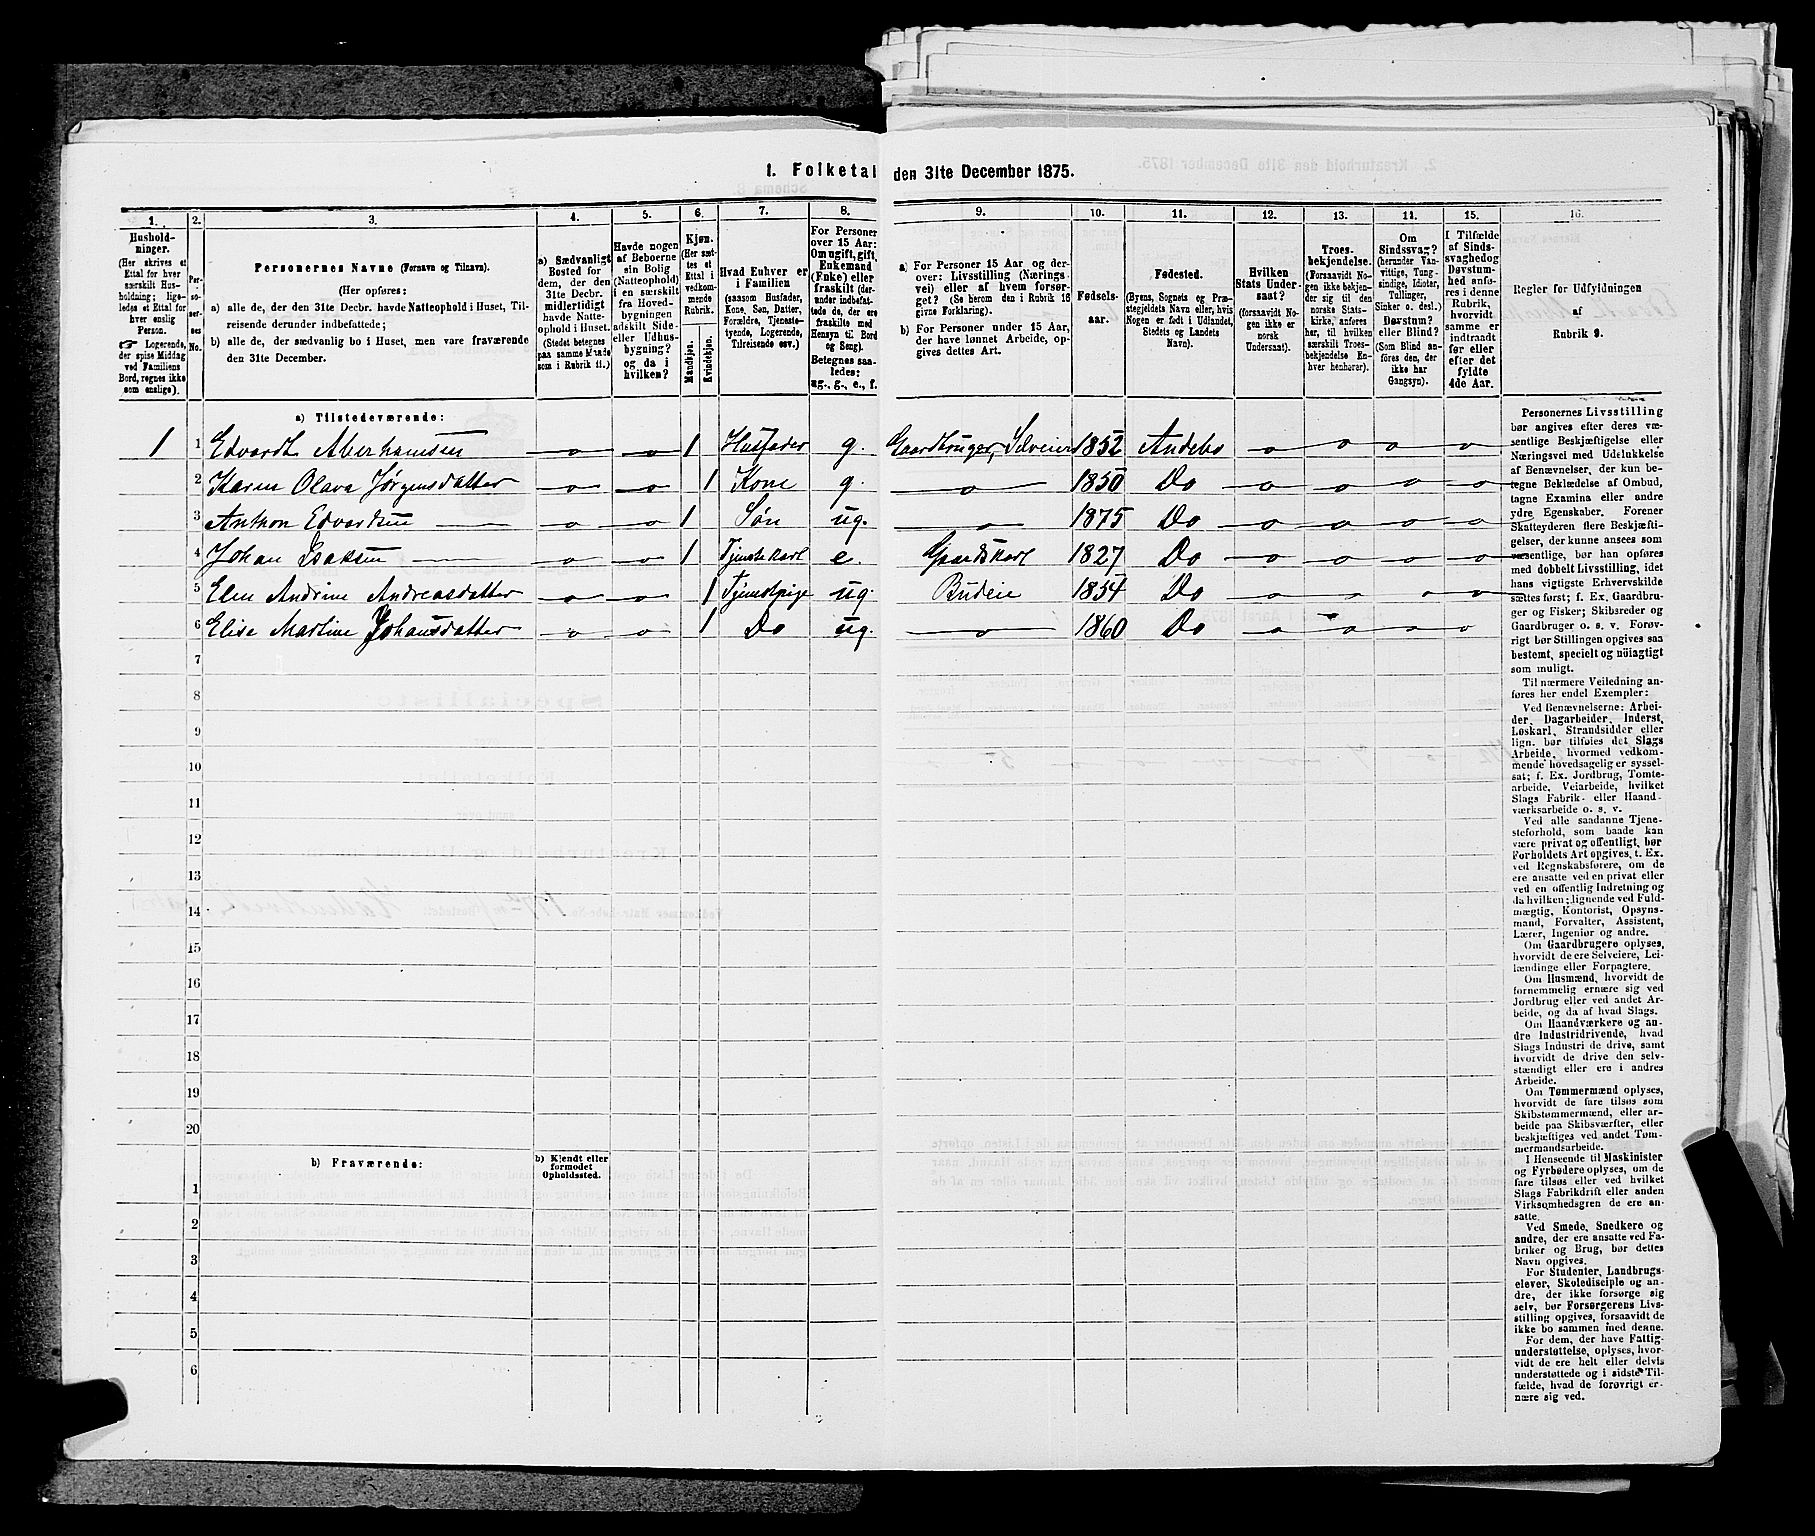 1. Folketal den 31te December 1875.
1. 2. 3. 4. 5. 6. 7. 8. 9. 10. 11. 12. 13. 14. 15. 16.
Hushold-
ninger.
(Her skrives et
Ettal for hver
særskilt Hus-
holdning; lige-
ledes et Ettal
for hver enslig
Person.
☞ Logerende,
der spise Middag
ved Familiens
Bord, regnes ikke
som enslige).
Per-
so-
ner-
nes
No.
Personernes Navne (Fornavn og Tilnavn).
(Her opføres:
a) alle de, der den 31te Decbr. havde Natteophold i Huset, Til-
reisende derunder indbefattede;
b) alle de, der sædvanlig bo i Huset, men vare fraværende
den 31te December.
a) Sædvanligt
Bosted for
dem, der den
31te Decbr.
midlertidigt
havde Natte-
ophold i Huset.
(Stedet betegnes
paa samme Maade
som i Rubrik 11.)
Havde nogen
af Beboerne
sin Bolig
(Natteophold)
i en særskilt
fra Hoved-
bygningen
adskilt Side-
eller Udhus-
bygning?
og da i
hvilken?
Kjøn.
(Her sæt-
tes et
Ettal i
vedkom-
mende
Rubrik.
Mandkjøn.
Kvindekjøn.
Hvad Enhver er
i Familien
(saasom Husfader,
Kone, Søn, Datter,
Forældre, Tjeneste-
tyende, Logerende,
Tilreisende osv.)
For Personer
over 15 Aar:
Om ugift, gift,
Enkemand
(Enke) eller
fraskilt (der-
under indbefat-
tede de, der ere
fraskilte med
Hensyn til Bord
og Seng).
Betegnes saa-
ledes:
ug., g., e., f.
a) For Personer 15 Aar og der-
over: Livsstilling (Nærings-
vei) eller af hvem forsør-
get? (Se herom den i Rubrik 16
givne Forklaring).
b) For Personer under 15 Aar,
der have lønnet Arbeide, op-
gives dettes Art.
Fødsels-
aar.
Fødested.
(Byens, Sognets og Præ-
stegjeldets Navn eller, hvis
Nogen er født i Udlandet,
Stedets og Landets
Navn).
Hvilken
Stats Under-
saat?
(forsaavidt No-
gen ikke er
norsk
Undersaat).
Troes-
bekjendelse.
(Forsaavidt No-
gen ikke bekjen-
der sig til den
norske Stats-
kirke, anføres
her, til hvilken
særskilt Troes-
bekjendelse En-
hver henhører).
Om
Sindssvag?
(herunder Van-
vittige, Tung-
sindige, Idioter,
Tullinger,
Sinker o. desl.)
Døvstum?
eller Blind?
(Som Blind an-
føres den, der
ikke har
Gangsyn).
I Tilfælde
af Sinds-
svaghed og
Døvstum-
hed anfø-
res i denne
Rubrik,
hvorvidt
samme er
indtraadt
før eller
efter det
fyldte
4de Aar.
Regler for Udfyldningen
af
Rubrik 9.
a) Tilstedeværende:
1 1 Edvardt Aberhamsen 1 Husfader g. Gaardbruger, Selveier 1852 Andebo
2 Karen Olava Jørgensdatter 1 Kone g. 1850 Do
3 Anthon Edvardsen 1 Søn ug. 1875 Do
4 Johan Isaksen 1 Tjenstekarl e. Gaardskarl 1827 Do
5 Elen Andrine Andreasdatter 1 Tjenstpige ug. Budeie 1854 Do
6 Elise Martine Johansdatter 1 Do ug. 1860 Do
7
8
9
10
11
12
13
14
15
16
17
18
19
20
b) Fraværende:
b) Kjendt eller
formodet
Opholdssted.
1
2
3
4
5
6
Personernes Livsstilling
bør angives efter deres væ-
sentlige Beskjæftigelse eller
Næringsvei med Udelukkelse
af Benævnelser, der kun be-
tegne Beklædelse af Ombud,
tagne Examina eller andre
ydre Egenskaber. Forener
Skatteyderen flere Beskjæfti-
gelser, der kunne ansees som
væsentlige, bør han opføres
med dobbelt Livsstilling, idet
hans vigtigste Erhvervskilde
sættes først; f. Ex. Gaardbru-
ger og Fisker; Skibsreder og
Gaardbruger o. s. v. Forøv-
rigt bør Stillingen opgives saa
bestemt, specielt og nöiagtigt
som muligt.
Til nærmere Veiledning an-
føres her endel Exempler:
Ved Benævnelserne: Arbei-
der, Dagarbeider, Inderst,
Løskarl, Strandsidder eller
lign. bør tilføies det Slags
Arbeide, hvormed vedkom-
mende hovedsagelig er syssel-
sat; f. Ex. Jordbrug, Tomte-
arbeide, Veiarbeide, hvilket
Slags Fabrik- eller Haand-
værksarbeide o. s. v.
Ved alle saadanne Tjene-
steforhold, som baade kan
være privat og offentligt, bør
Forholdets Art opgives, t. Ex.
ved Regnskabsførere, om de
ere ansatte ved en privat eller
ved en offentlig Indretning og
da hvilken; lignende ved Fuld-
mægtig, Kontorist, Opsyns-
mand, Forvalter, Assistent,
Lærer, Ingeniør og andre.
Om Gaardbrugere oplyses,
hvorvidt de ere Selveiere, Lei-
lændinge eller Forpagtere.
Om Husmænd, hvorvidt de
fornemmelig ernære sig ved
Jordbrug eller ved andet Ar-
beide, og da af hvad Slags.
Om Haandværkere og an-
dre Industridrivende, hvad
Slags Industri de drive, samt
hvorvidt de drive den selv-
stændigt eller ere i andres
Arbeide.
Om Tømmermænd oplyses,
hvorvidt de fare tilsøs som
Skibstømmermænd, eller ar-
beide paa Skibsværfter, eller
beskjæftiges ved andet Tøm-
mermandsarbeide.
I Henseende til Maskinister
og Fyrbødere oplyses, om de
fare tilsøs eller ved hvilket
Slags Fabrikdrift eller anden
Virksomhedsgren de ere an-
satte.
Ved Smede, Snedkere og
andre, der ere ansatte ved Fa-
briker og Brug, bør dettes
Navn opgives.
For Studenter, Landbrugs-
elever, Skoledisciple og an-
dre, der ikke forsørge sig
selv, bør Forsørgerens Livs-
stilling opgives, forsaavidt de
ikke bo sammen med denne.
For dem, der have Fattig-
understøttelse, oplyses, hvor-
vidt de ere helt eller delvis
understøttede og i sidste Til-
fælde, hvad de forøvrigt er-
nære sig ved.